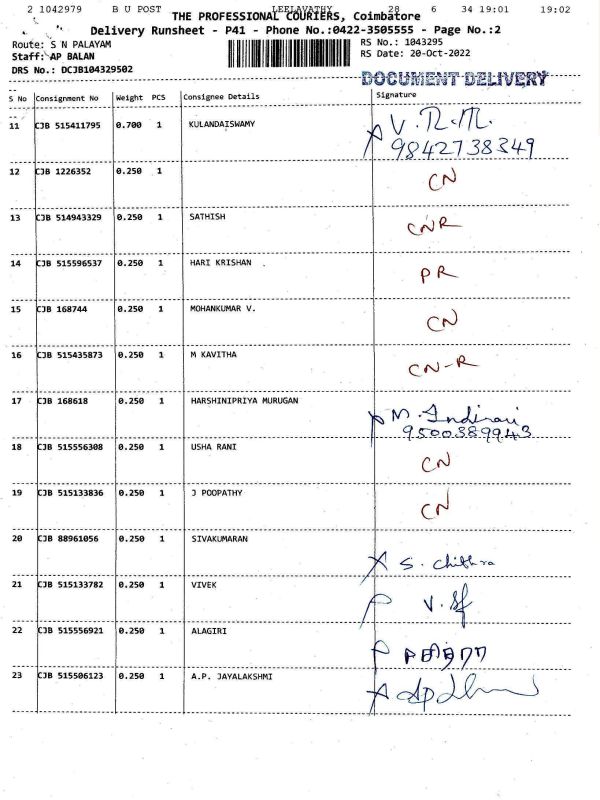 2 1042979 B U POST LEELAVATHY 28 6 34 19:01 19:02
THE PROFESSIONAL COURIERS, Coimbatore
Delivery Runsheet - P41 - Phone No.:0422-3505555 - Page No.:2
Route: S N PALAYAM RS No.: 1043295
Staff: AP BALAN RS Date: 20-Oct-2022
DRS No.: DCJB104329502 DOCUMENT DELIVERY
S No Consignment No Weight PCS Consignee Details Signature
11 CJB 515411795 0.700 1 KULANDAISWAMY V. R.M.
9842738349
12 CJB 1226352 0.250 1 CN
13 CJB 514943329 0.250 1 SATHISH CNR
14 CJB 515596537 0.250 1 HARI KRISHAN . PR
15 CJB 168744 0.250 1 MOHANKUMAR V. CN
16 CJB 515435873 0.250 1 M KAVITHA CN-R
17 CJB 168618 0.250 1 HARSHINIPRIYA MURUGAN M. Indirani
9500389943
18 CJB 515556308 0.250 1 USHA RANI CN
19 CJB 515133836 0.250 1 J POOPATHY CN
20 CJB 88961056 0.250 1 SIVAKUMARAN S. Chithra
21 CJB 515133782 0.250 1 VIVEK
22 CJB 515556921 0.250 1 ALAGIRI
23 CJB 515506123 0.250 1 A.P. JAYALAKSHMI